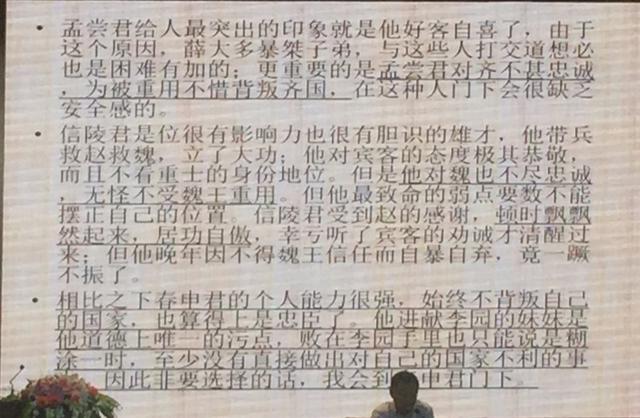 • 孟尝君给人最突出的印象就是他好客自喜了，由于
这个原因，薛大多暴桀子弟，与这些人打交道想必
也是困难有加的；更重要的是孟尝君对齐不甚忠诚
，为被重用不惜背叛齐国，在这种人门下会很缺乏
安全感的。
• 信陵君是位很有影响力也很有胆识的雄才，他带兵
救赵救魏，立了大功；他对宾客的态度极其恭敬，
而且不看重士的身份地位。但是他对魏也不尽忠诚
，无怪不受魏王重用。但他最致命的弱点要数不能
摆正自己的位置。信陵君受到赵的感谢，顿时飘飘
然起来，居功自傲，幸亏听了宾客的劝诫才清醒过
来；但他晚年因不得魏王信任而自暴自弃，竟一蹶
不振了。
• 相比之下春申君的个人能力很强，始终不背叛自己
的国家，也算得上是忠臣了。他进献李园的妹妹是
他道德上唯一的污点，败在李园手里也只能说是糊
涂一时，至少没有直接做出对自己的国家不利的事
因此非要选择的话，我会到 申君门下。